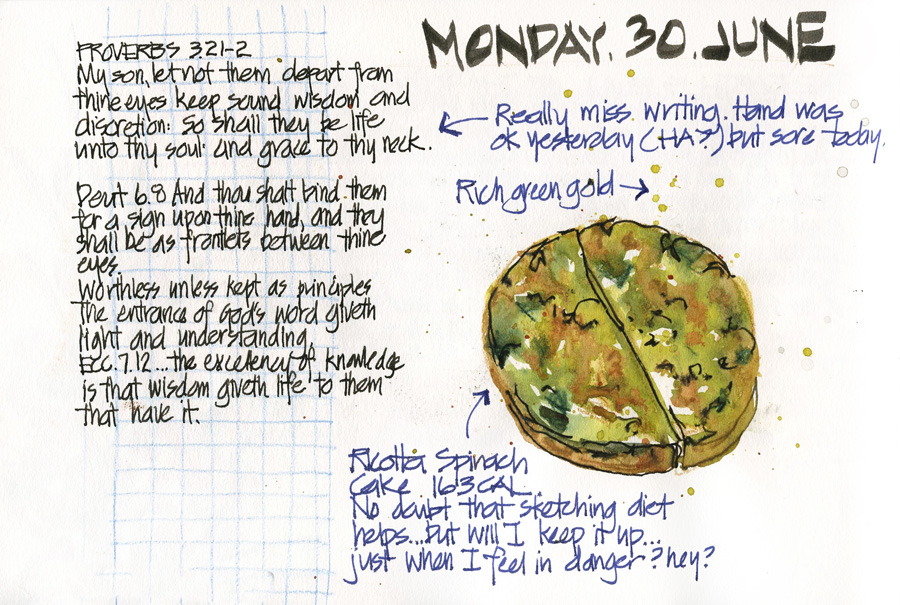 MONDAY. 30. JUNE
PROVERBS 3.21-2
My son, let not them depart from
thine eyes keep sound wisdom and
discretion: So shall they be life
unto thy soul and grace to thy neck.
Deut 6.8 And thou shalt bind them
for a sign upon thine hand, and they
shall be as frontlets between thine
eyes.
Worthless unless kept as principles
The entrance of God's word giveth
light and understanding.
ECC. 7.12 ... the excellency of knowledge
is that wisdom giveth life to them
that have it.
Really miss writing. Hand was
ok yesterday (HA?) but sore today.
Rich green gold
Ricotta Spinach
Cake 163 CAL
No doubt that sketching diet
helps...but will I keep it up...
just when I feel in danger? hey?